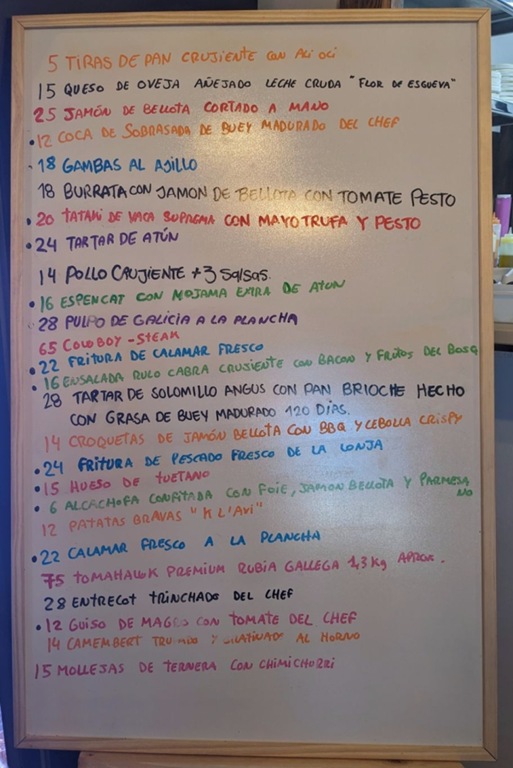 5 TIRAS DE PAN CRUJIENTE CON ALI OLI
15 QUESO DE OVEJA AÑEJADO LECHE CRUDA "FLOR DE ESGUEVA"
25 JAMÓN DE BELLOTA CORTADO A MANO
• 12 COCA DE SOBRASADA DE BUEY MADURADO DEL CHEF
• 18 GAMBAS AL AJILLO
18 BURRATA CON JAMON DE BELLOTA CON TOMATE PESTO
• 20 TATAKI DE VACA SUPREMA CON MAYOTRUFA Y PESTO
• 24 TARTAR DE ATÚN
14 POLLO CRUJIENTE + 3 SALSAS.
• 16 ESPENCAT CON MOJAMA EXTRA DE ATUN
28 PULPO DE GALICIA A LA PLANCHA
65 COWBOY - STEAK
• 22 FRITURA DE CALAMAR FRESCO
• 16 ENSALADA RULO CABRA CRUJIENTE CON BACON Y FRUTOS DEL BOSQ
28 TARTAR DE SOLOMILLO ANGUS CON PAN BRIOCHE HECHO
CON GRASA DE BUEY MADURADO 120 DÍAS.
14 CROQUETAS DE JAMÓN BELLOTA CON BBQ Y CEBOLLA CRISPY
• 24 FRITURA DE PESCADO FRESCO DE LA LONJA
• 15 HUESO DE TUETANO
• 6 ALCACHOFA CONFITADA CON FOIE, JAMON BELLOTA Y PARMESA
NO
12 PATATAS BRAVAS "K L'AVI"
• 22 CALAMAR FRESCO A LA PLANCHA
75 TOMAHAWK PREMIUM RUBIA GALLEGA 1,3 Kg APROX.
28 ENTRECOT TRINCHADO DEL CHEF
• 12 GUISO DE MAGRO CON TOMATE DEL CHEF
14 CAMEMBERT TRUFADO Y GRATINADO AL HORNO
15 MOLLEJAS DE TERNERA CON CHIMICHORRI